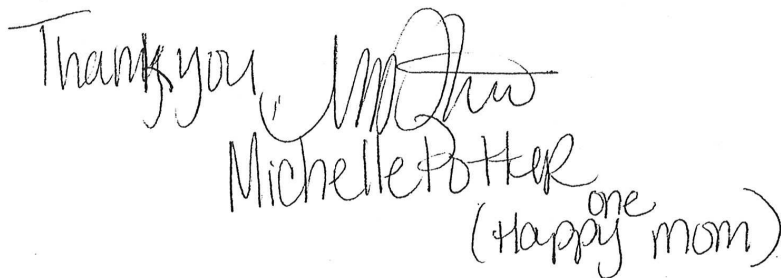 Thank you,
Michelle Potter
(one Happy mom)